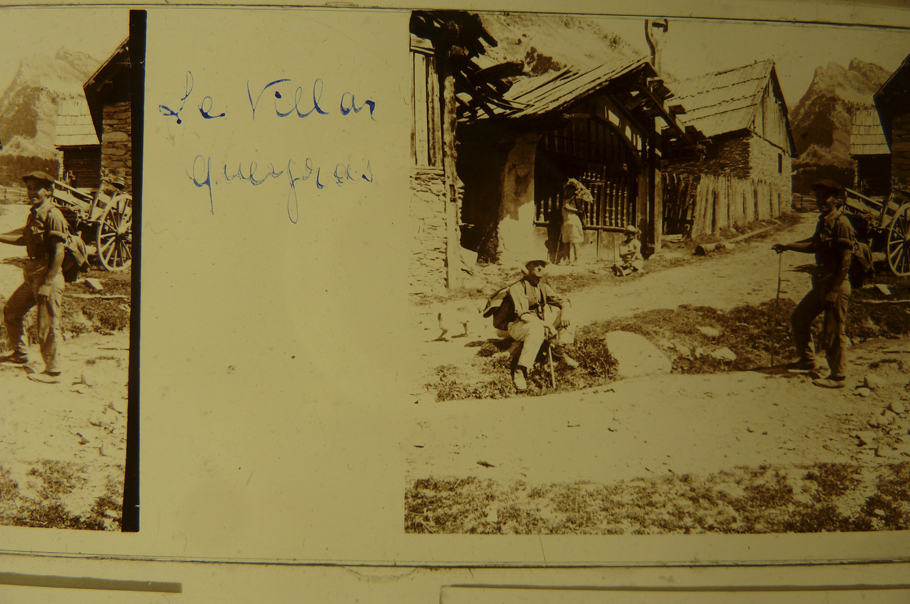 Le Villar
Queyras